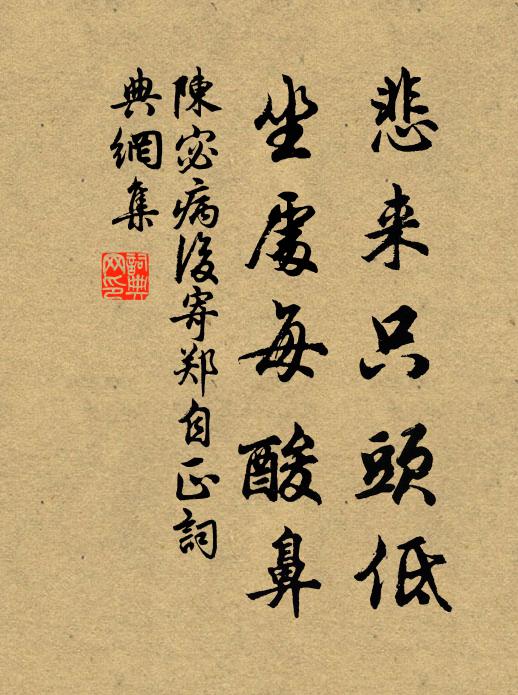 悲来只頭低
坐處每酸鼻
陳宓病後寄郑自正詞
典網集
詞典
网印